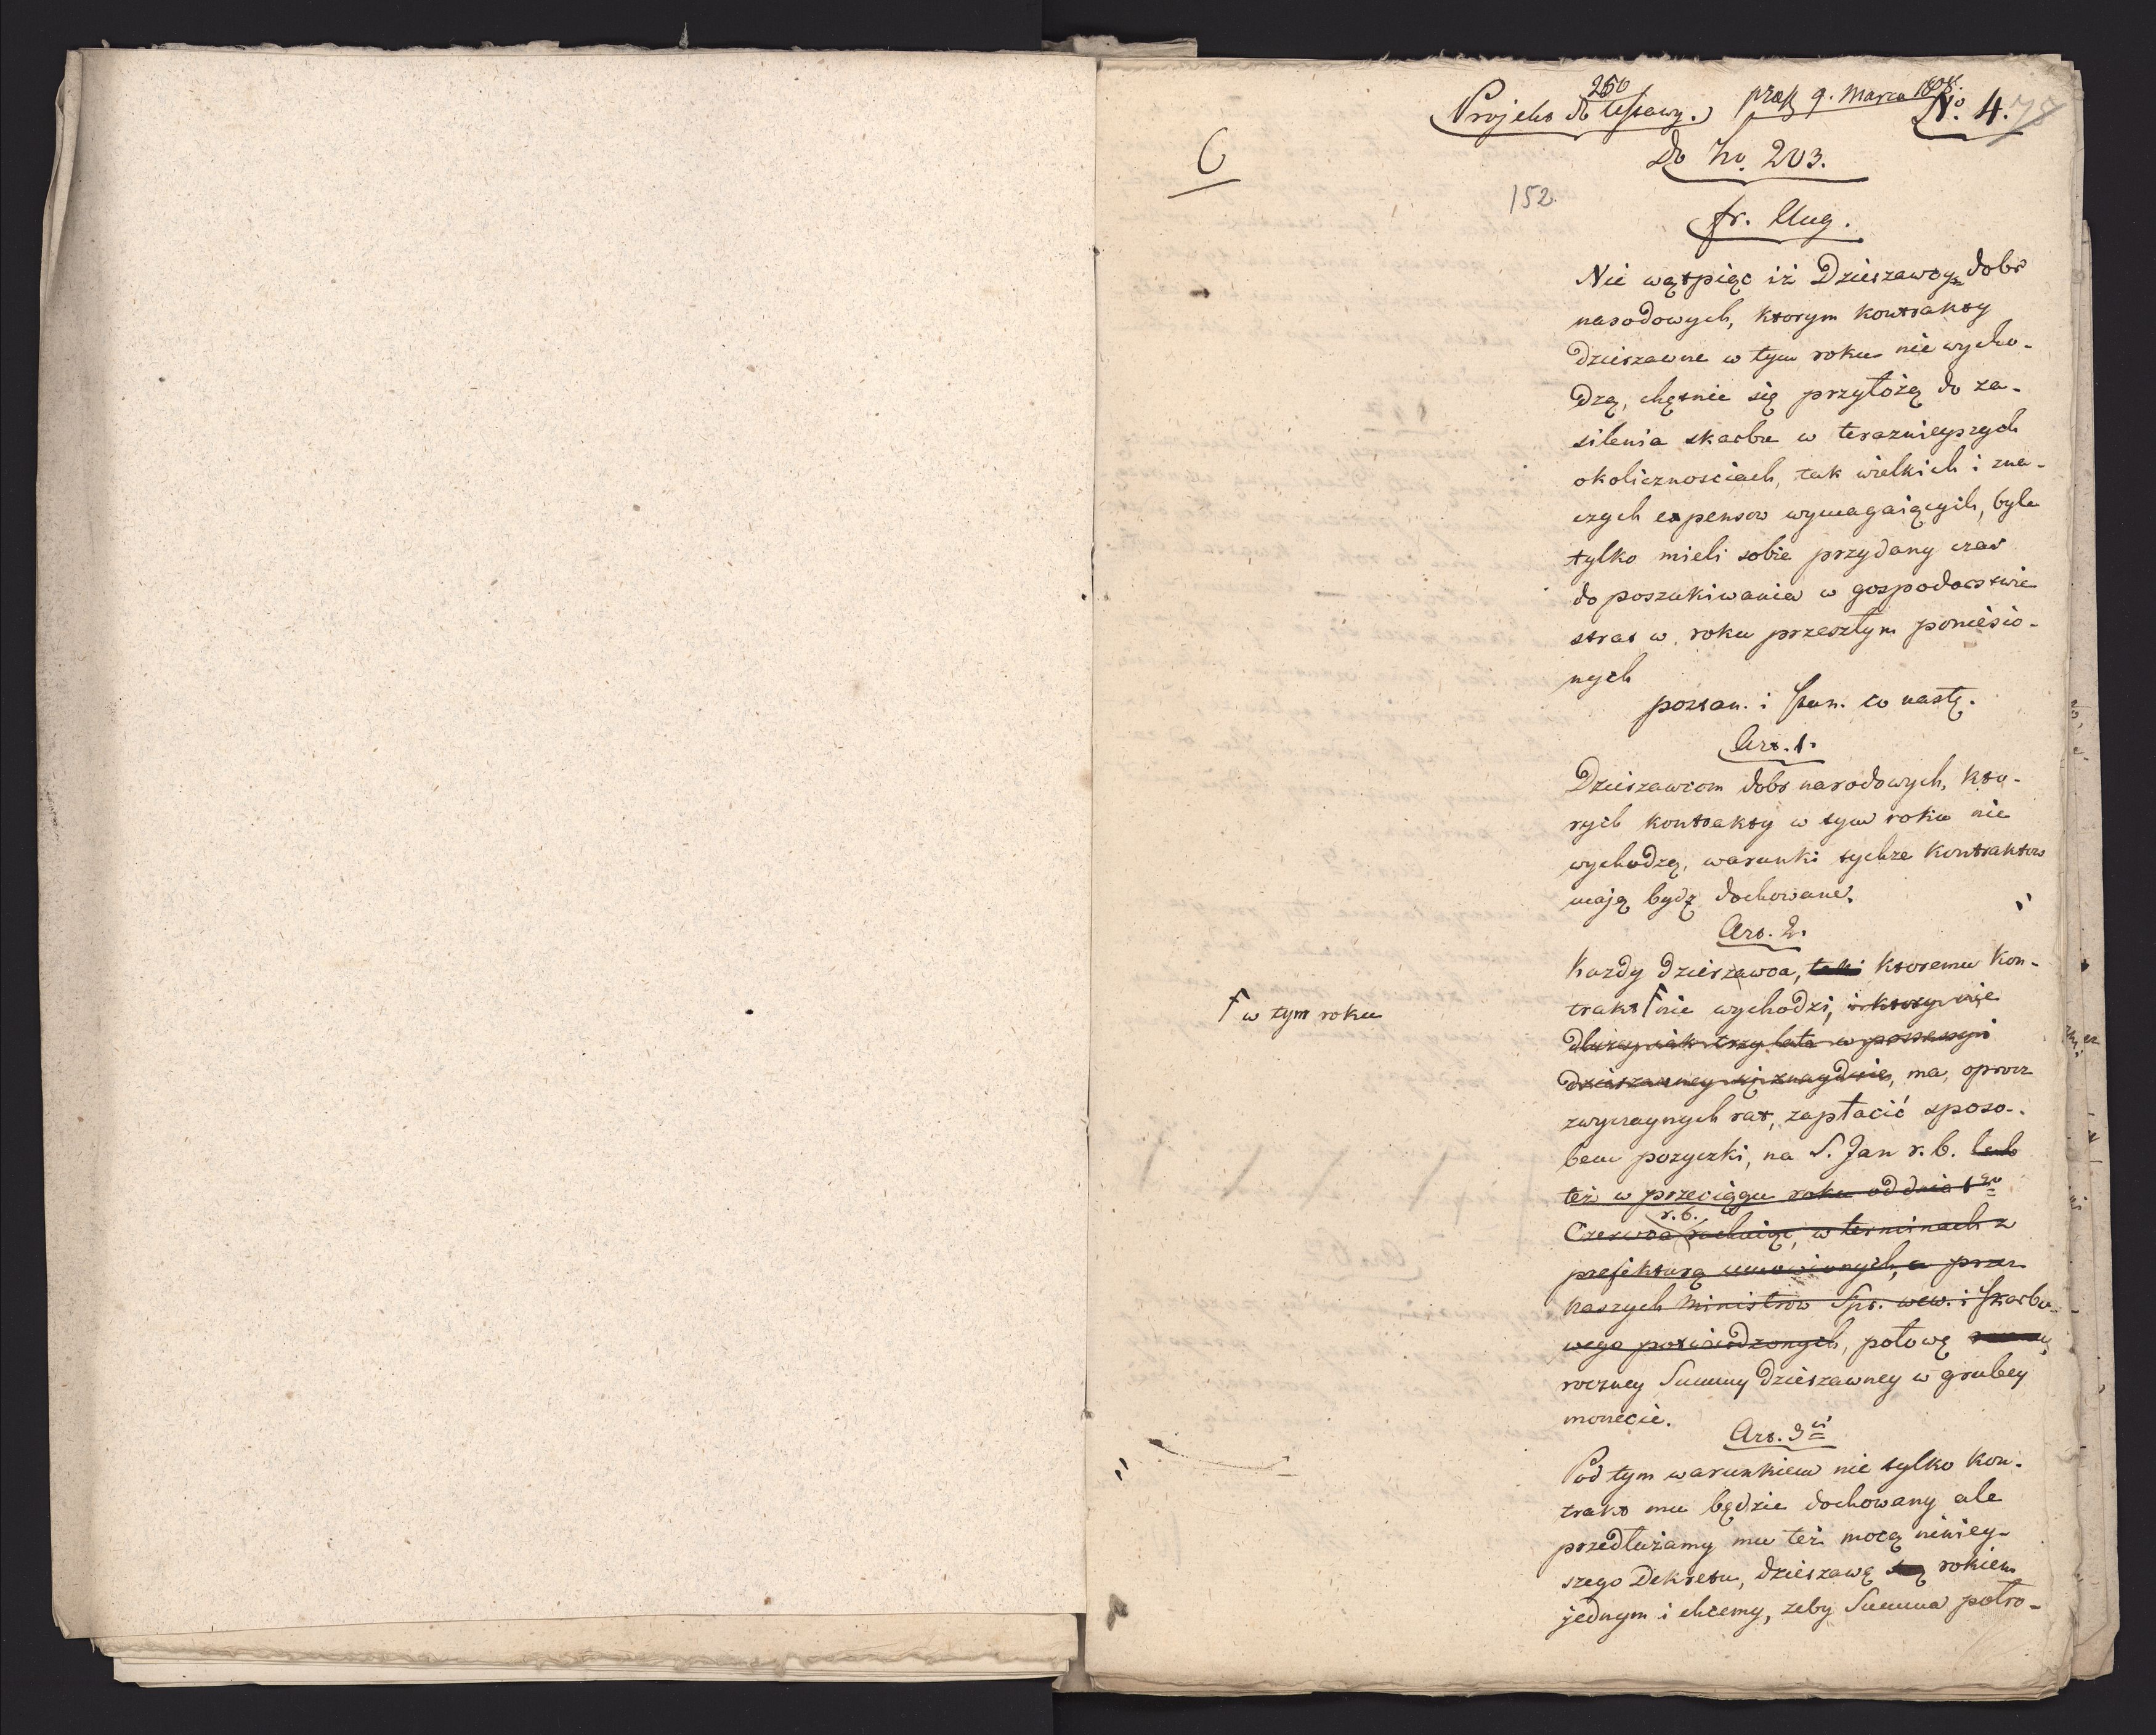 250
Projekt do Ustawy. praes 9. Marca 1808. No. 4. 78
C
do No. 203.
152.
fr. Aug.
Nie wątpiąc iż Dzierzawcy dobr
narodowych, ktorym kontrakty
dzierzawne w tym roku nie wycho-
dzą, chętnie się przyłożą do za-
silenia skarbu w terazniejszych
okolicznosciach, tak wielkich i zna-
cznych expensow wymagaiących, byle
tylko mieli sobie przydany czas
do poszukiwania w gospodarstwie
strat w roku przeszłym poniesio-
nych
pozstan. i stan. co nastę.
Art. 1.
Dzierzawcom dobr narodowych, kto-
rych kontrakty w tym roku nie
wychodzą, warunki tychze kontraktow
mają bydz dochowane.
Art. 2.
Kazdy dzierzawca, taki ktoremu kon-
trakt ſ nie wychodzi, i ktory nie
ſ w tym roku
dłużey iak trzy lata w possessyi
dzierzawney się znayduie, ma, oprocz
zwyczaynych rat, zapłacić sposo-
bem pozyczki, na S. Jan r. b. lub
też w przeciągu roku od dnia 1go
r. b.
Czerwca rachuiąc, w terminach z
prefekturą umowionych, a przez
naszych Ministrow Spr. wew. i skarbo-
wego potwierdzonych, połowę
roczney Summy dzierzawney w grubey
monecie.
Art. 3ci
Pod tym warunkiem nie tylko kon-
trakt mu będzie dochowany ale
przedłużamy mu też mocą niniey-
szego Dekretu, dzierzawę rokiem
jednym i chcemy, zeby Summa połro-